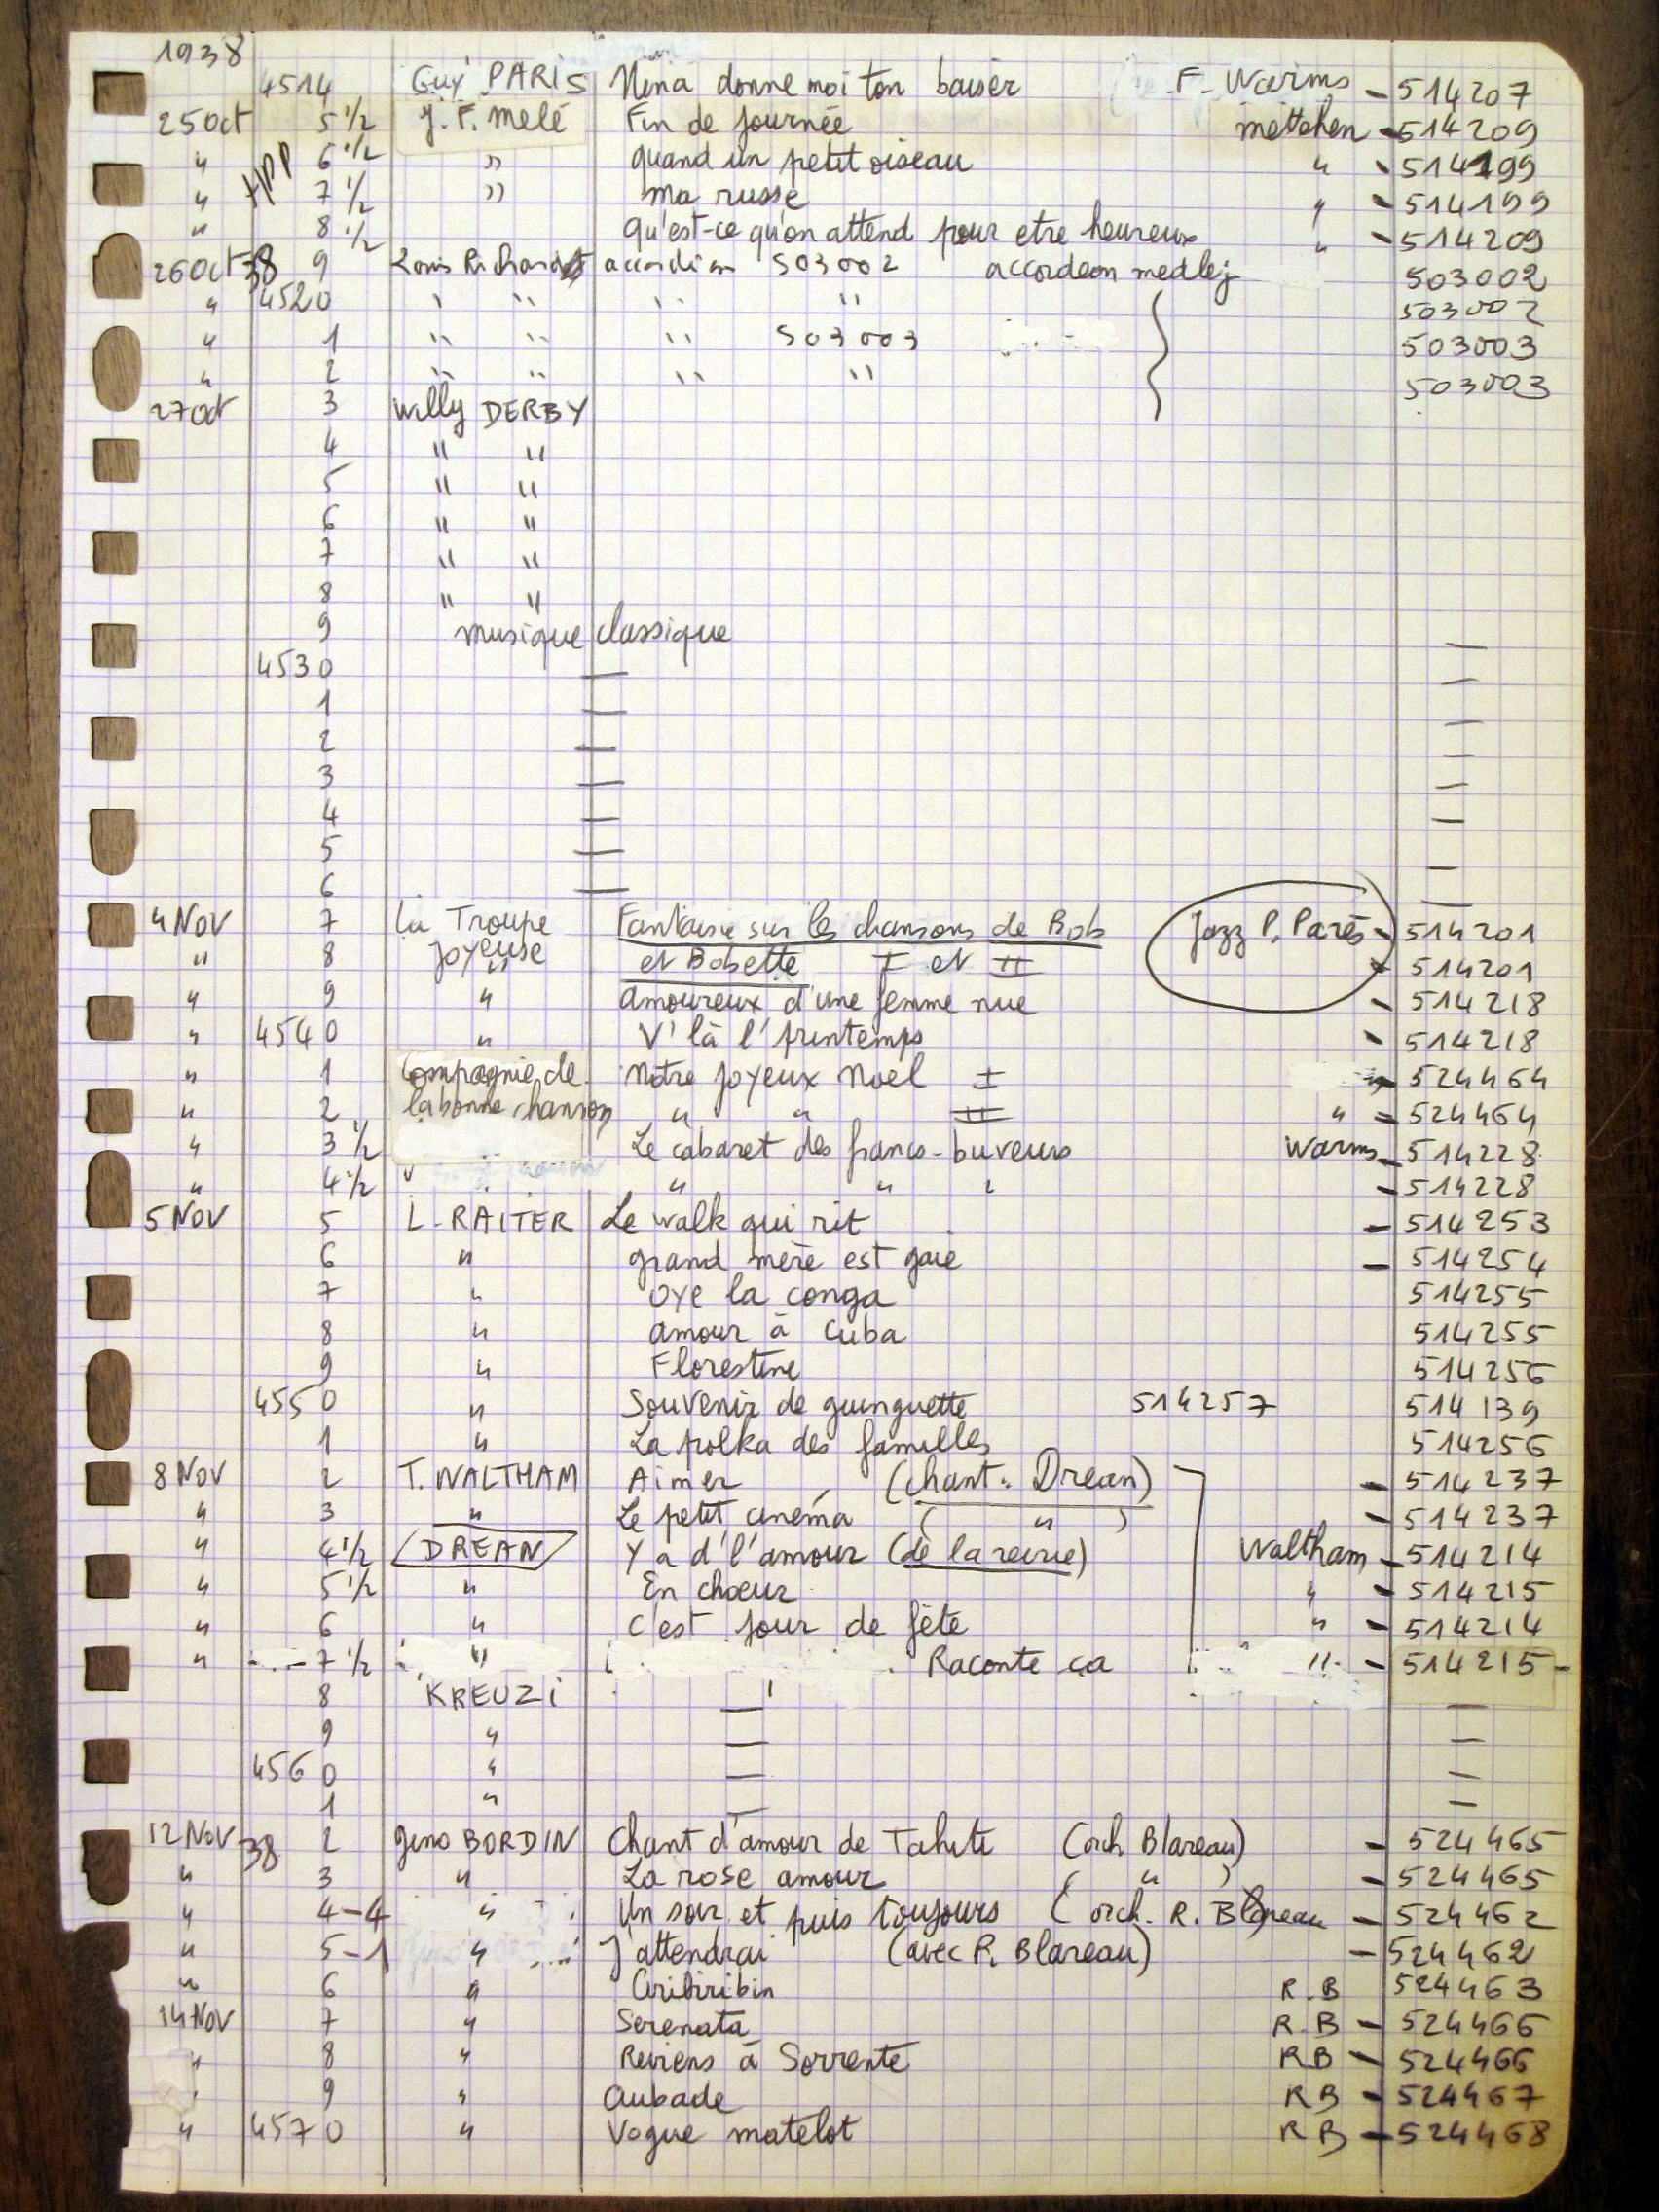 1938
4514 Guy PARIS Nina donne moi ton baiser F. Warms - 514207
25 Oct 5 1/2 J. F. Melé Fin de journée mettehen - 514209
" 6 1/2 " quand un petit oiseau " - 514199
" HPP 7 1/2 " ma russe " - 514199
" 8 1/2 qu'est-ce qu'on attend pour etre heureux " - 514209
26 Oct 38 9 Louis Richardet accordéon 503002 accordeon medley 503002
" 4520 " " " " 503002
" 1 " " " 503003 503003
" 2 " " " " 503003
27 Oct 3 Willy DERBY
4 " "
5 " "
6 " "
7 " "
8 " "
9 musique classique —
4530 — —
1 — —
2 — —
3 — —
4 — —
5 — —
6 — —
4 Nov 7 La Troupe Fantaisie sur les chansons de Bob Jazz P. Parès - 514201
" 8 Joyeuse " et Bobette I et II - 514201
" 9 " amoureux d'une femme nue - 514218
" 4540 " V'là l'printemps - 514218
" 1 Compagnie de Notre joyeux Noel I - 524464
" 2 la bonne chanson " " II " - 524464
" 3 1/2 Le cabaret des francs-buveurs Warms - 514228
" 4 1/2 " " " - 514228
5 Nov 5 L. RAITER Le walk qui rit - 514253
6 " grand mère est gaie - 514254
7 " oye la conga 514255
8 " amour à Cuba 514255
9 " Florestine 514256
4550 " Souvenir de guinguette 514257 514139
1 " La polka des familles 514256
8 Nov 2 T. WALTHAM Aimer (chant: Drean) - 514237
" 3 " Le petit cinéma ( " ) - 514237
" 4 1/2 DREAN Y a d'l'amour (de la reine) Waltham - 514214
" 5 1/2 " En chœur " - 514215
" 6 " C'est jour de fête " - 514214
" 7 1/2 " Raconte ça " - 514215 -
8 KREUZI — —
9 " — —
4560 " — —
1 " — —
12 Nov 38 2 Gino BORDIN Chant d'amour de Tahiti (orch Blareau) - 524465
" 3 " La rose amour ( " ) - 524465
" 4-4 " Un soir et puis toujours (orch. R. Blareau - 524462
" 5-1 " J'attendrai (avec R. Blareau) - 524462
" 6 " Ciribiribin R.B 524463
14 Nov 7 " Serenata R.B - 524466
" 8 " Reviens à Sorrente RB - 524466
" 9 " Aubade RB - 524467
" 4570 " Vogue matelot RB - 524468